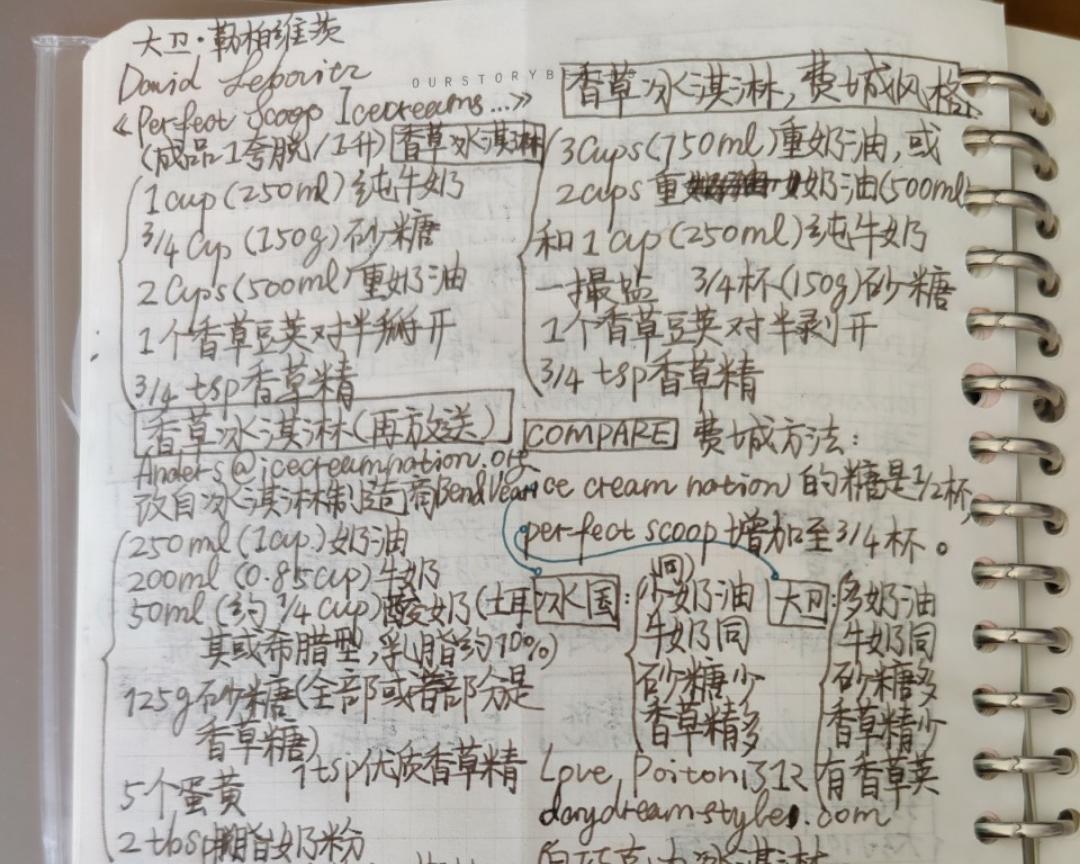 大卫·勒柏维茨
David Lebovitz
OURSTORYBE
《Perfect Scoop Icecreams...》
(成品1夸脱/1升) 香草冰淇淋
1 cup (250ml) 纯牛奶
3/4 Cup (150g) 砂糖
2 Cups (500ml) 重奶油
1个香草豆荚对半掰开
3/4 tsp 香草精
香草冰淇淋(再放送)
Anders@icecreamnation.org
改自冰淇淋制造商Ben
250ml (1cup) 奶油
200ml (0.85cup) 牛奶
50ml (约1/4 cup) 酸奶(土耳
其或希腊型,乳脂约10%)
125g砂糖(全部或者部分是
香草糖)
1tsp优质香草精
5个蛋黄
2 tbsp脱脂奶粉
香草冰淇淋,费城风格
3Cups(750ml)重奶油,或
2cups 重奶油(500ml)
和1 cup (250ml) 纯牛奶
一撮盐 3/4杯(150g)砂糖
1个香草豆荚对半剥开
3/4 tsp香草精
COMPARE 费城方法:
ice cream nation的糖是1/2杯,
perfect scoop增加至3/4杯。
冰国:少奶油(同)
牛奶同
砂糖少
香草精多
大卫:多奶油
牛奶同
砂糖多
香草精少
有香草荚
Love, Poitoni312
daydream-style.com